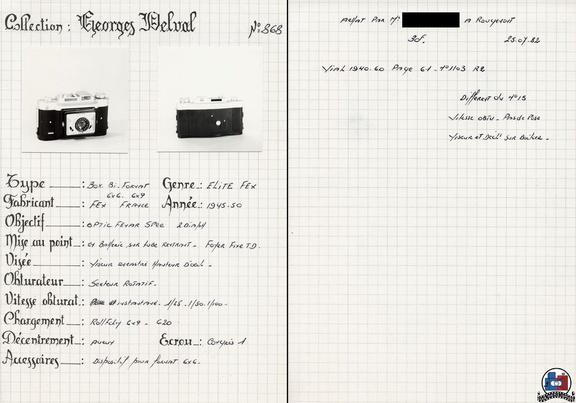 Collection : Georges Delval
N°: 868
Type : Box Bi. Format 6x6 6x9
Genre : ELITE FEX
Fabricant : FEX France
Année : 1945-50
Objectif : OPTIC FEXAR SPEC 2 Diaph
Mise au point : sur Tube Rentrant - Foyer Fixe T.D.
Visée : Viseur
Obturateur : Secteur Rotatif -
Vitesse obturat : instantané. 1/25. 1/50. 1/100 -
Chargement : Roll Film 6x9 - 620
Décentrement : aucun
Ecrou : Congrès 1
Accessoires : Dispositif pour format 6x6.
Achat Par Mr A Rougemont
30F. 25.07.82
Vial 1940.60 Page 61 - N°1103 R2
Different du N°15
Vitesse obtu - Pas de Pose
Viseur et Decl' sur Boitier -